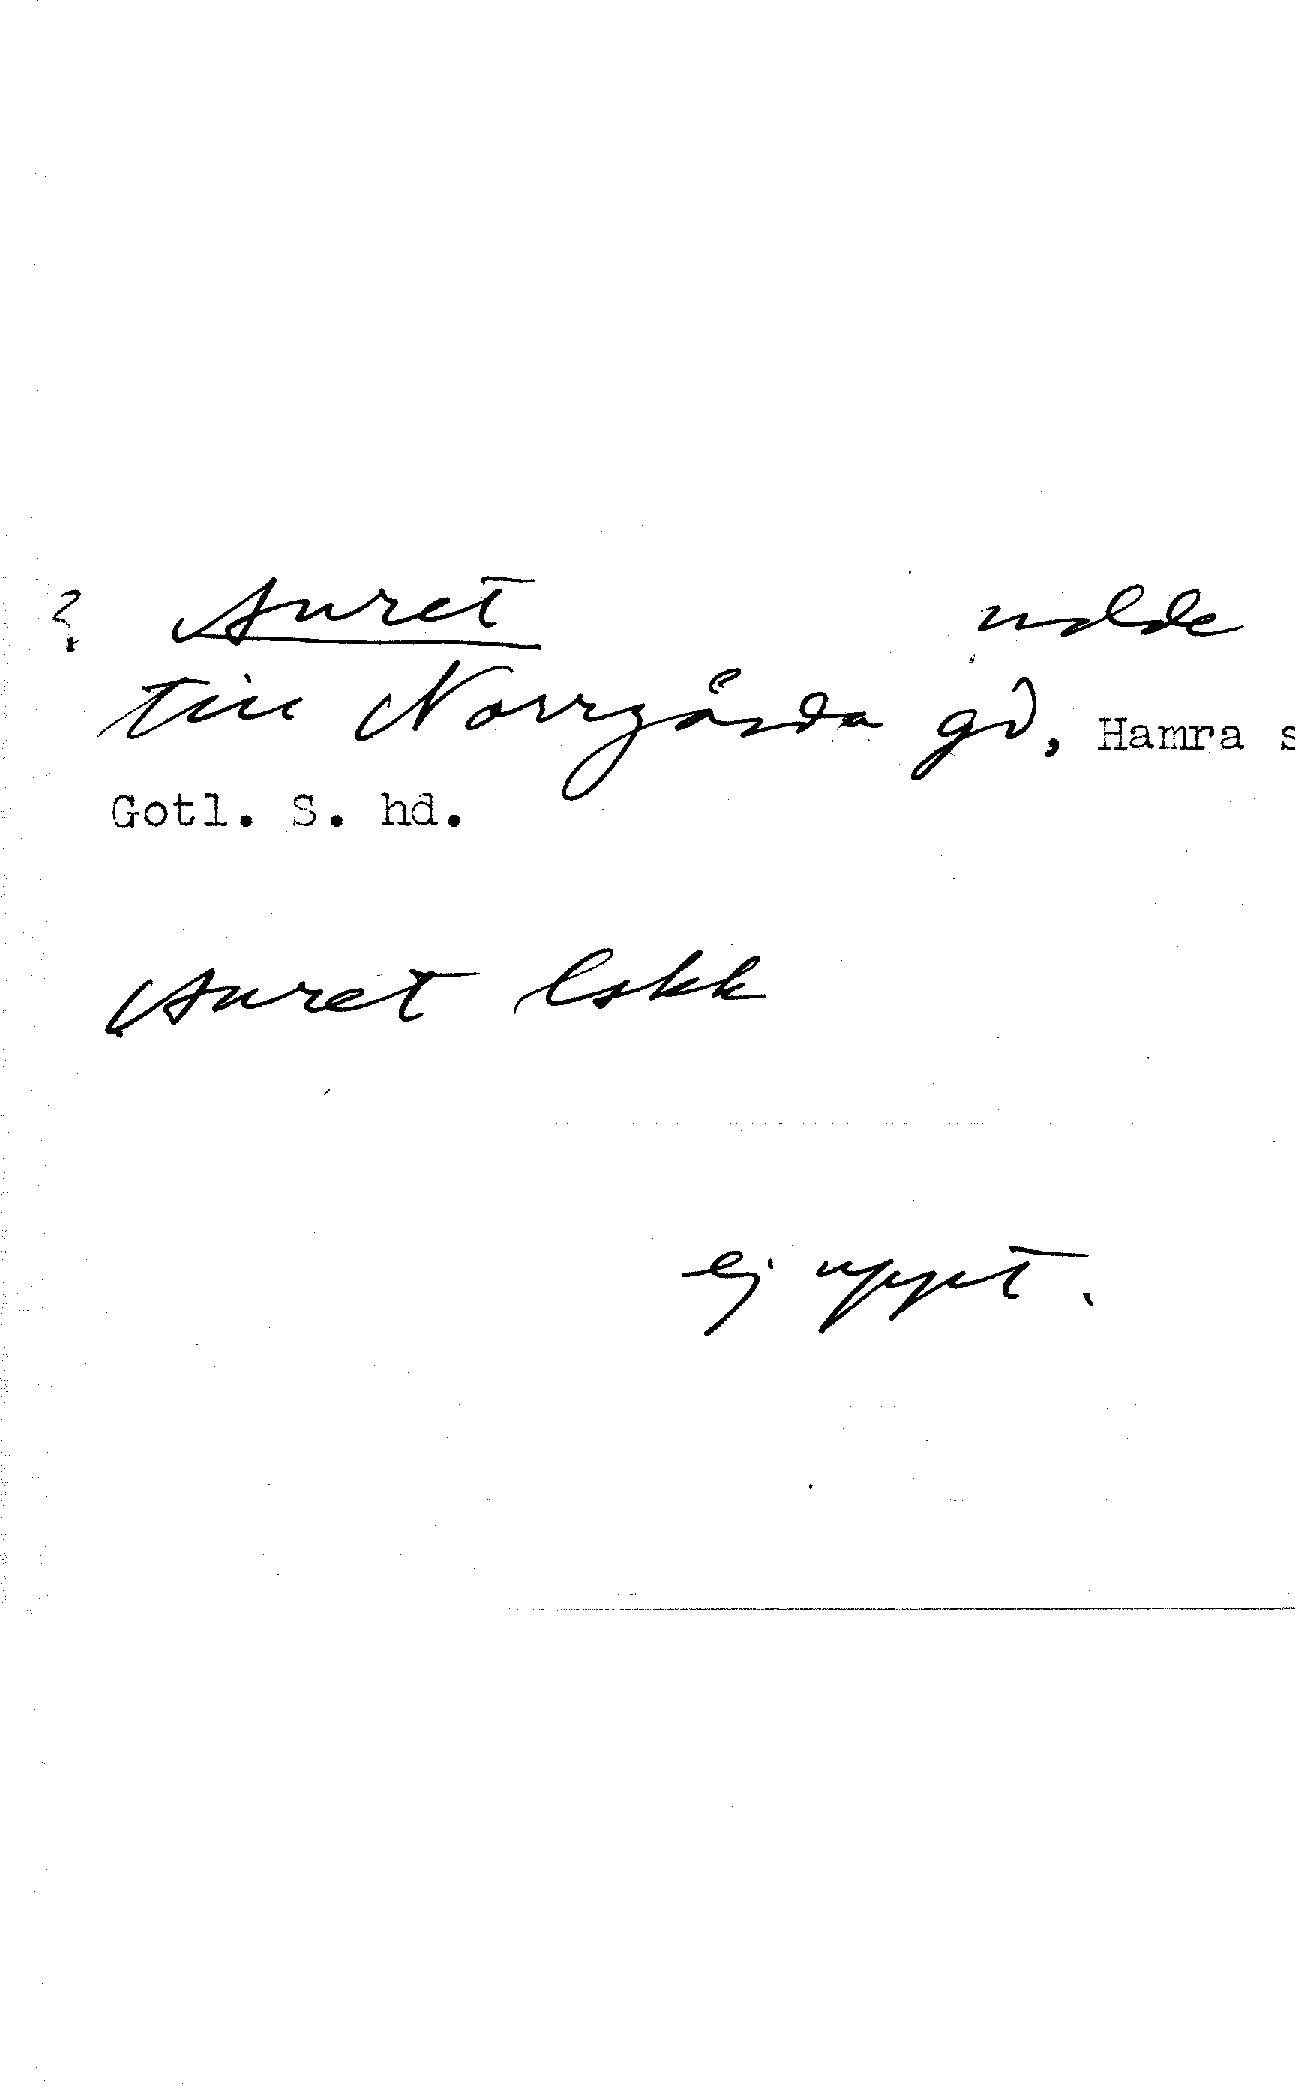 ? Auret udde
till Norrgårda gd, Hamra s
Gotl. S. hd.
Auret Lskk
ej uppt.